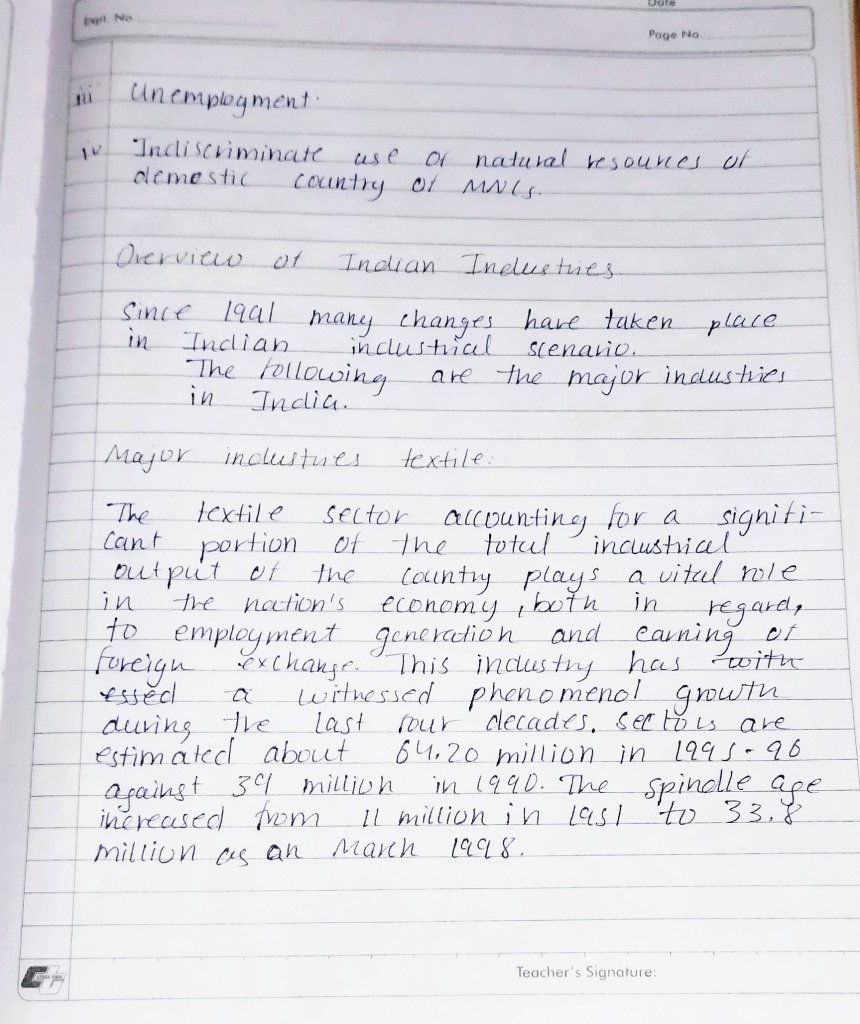 Date
Expt. No.
Page No.
iii Unemployment.
iv Indiscriminate use of natural resources of
demestic country of MNCs.
Overview of Indian Industries
Since 1991 many changes have taken place
in Indian industrial scenario.
The following are the major industries
in India.
Major industries textile:
The textile sector accounting for a signifi-
cant portion of the total industrial
output of the country plays a vital role
in the nation's economy, both in regard,
to employment generation and earning of
foreign exchange. This industry has with
essed a witnessed phenomenol growth
during the last four decades. Sectors are
estimated about 64.20 million in 1995-96
against 39 million in 1990. The spindle age
increased from 11 million in 1951 to 33.8
million as an March 1998.
Teacher's Signature: